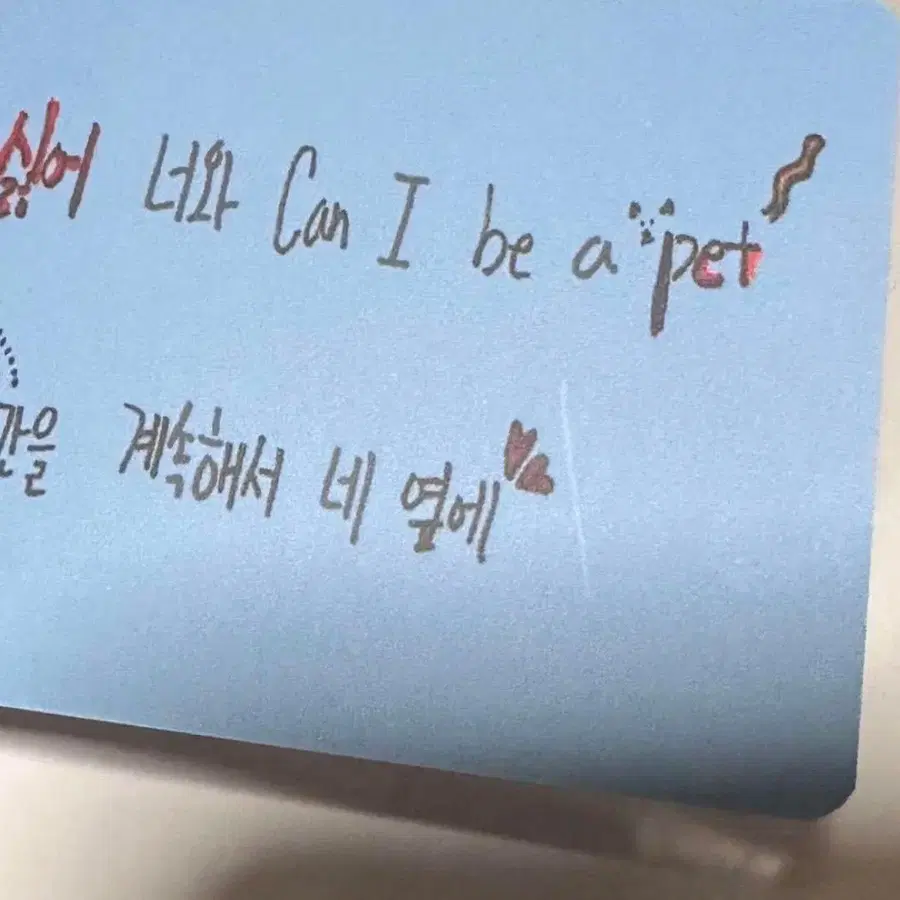 싫어 너와 Can I be a pet
간을 계속해서 네 옆에